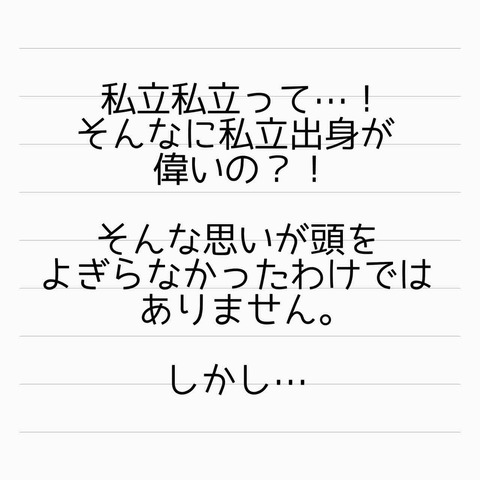 私立私立って…！
そんなに私立出身が
偉いの？！
そんな思いが頭を
よぎらなかったわけでは
ありません。
しかし…